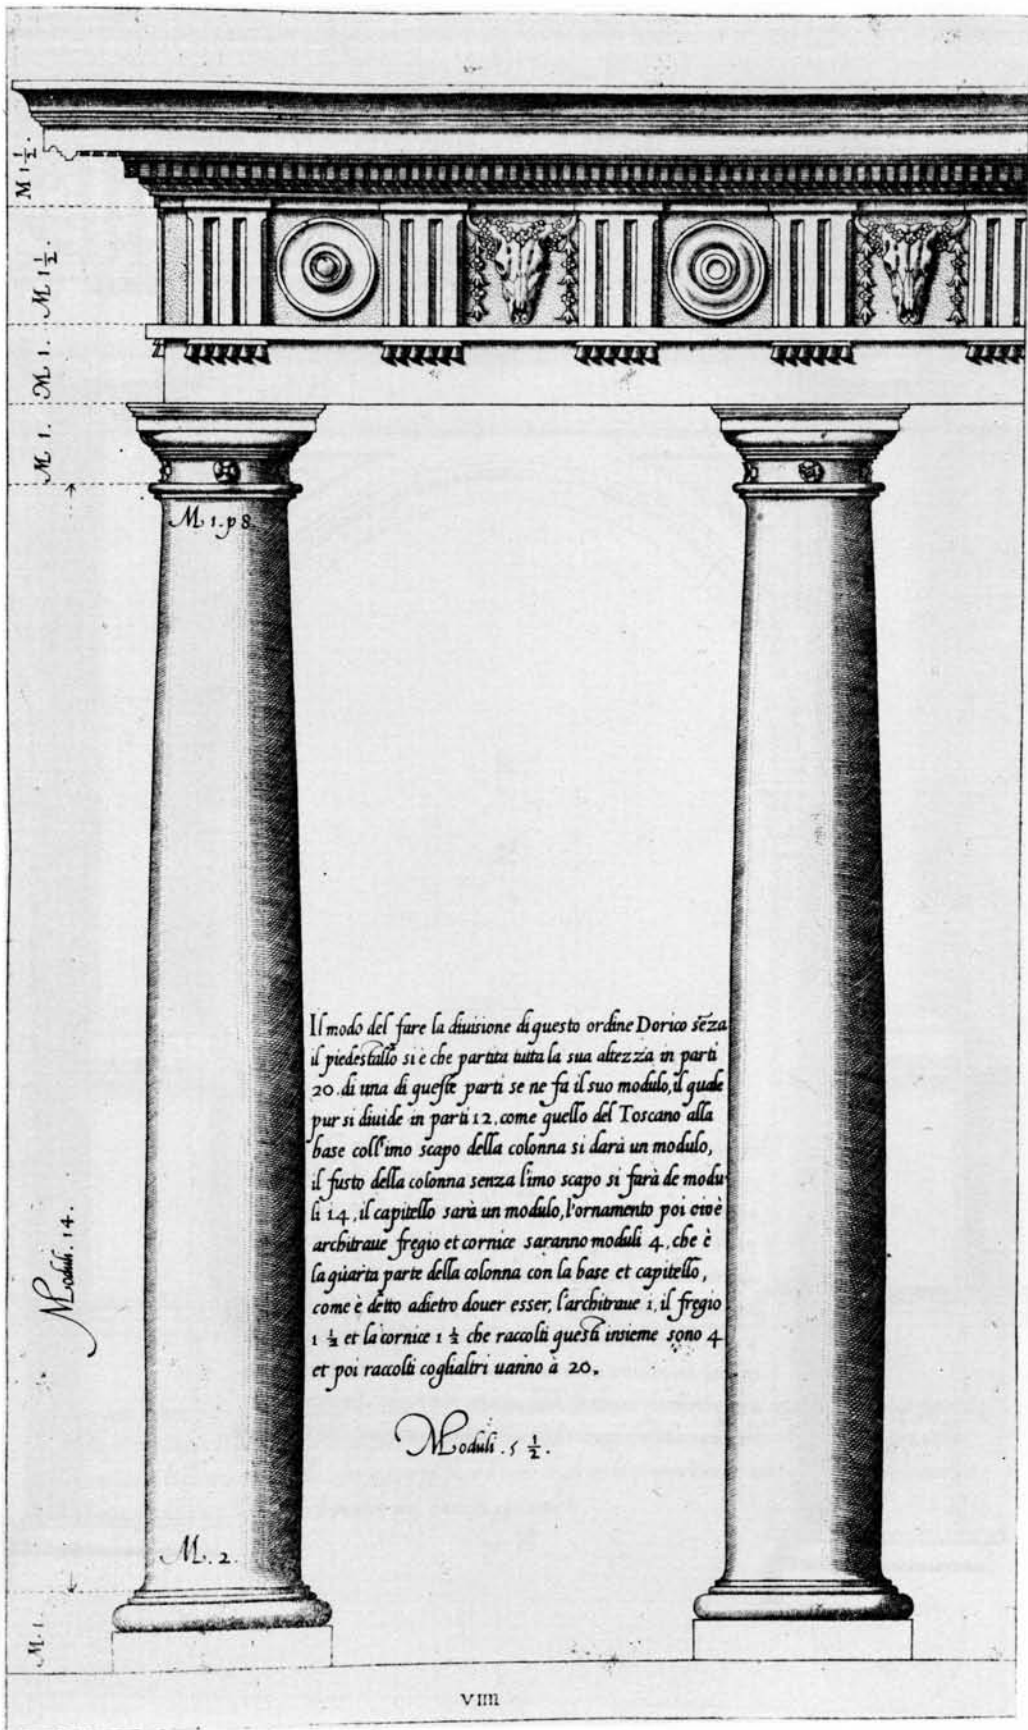 M 1 1/2.
M 1 1/2.
M 1.
M 1.
M 1. p 8.
Il modo del fare la diuisione di questo ordine Dorico sēza
il piedestallo si è che partita tutta la sua altezza in parti
20. di una di queste parti se ne fa il suo modulo, il quale
pur si diuide in parti 12, come quello del Toscano alla
base coll'imo scapo della colonna si darà un modulo,
il fusto della colonna senza l'imo scapo si farà de modu
li 14, il capitello sarà un modulo, l'ornamento poi cioè
architraue fregio et cornice saranno moduli 4, che è
la quarta parte della colonna con la base et capitello,
come è detto adietro douer esser, l'architraue 1, il fregio
1 1/2 et la cornice 1 1/2 che raccolti questi insieme sono 4
et poi raccolti coglialtri uanno à 20.
Moduli. 14.
Moduli. 5 1/2.
M. 2.
M. 1
VIIII